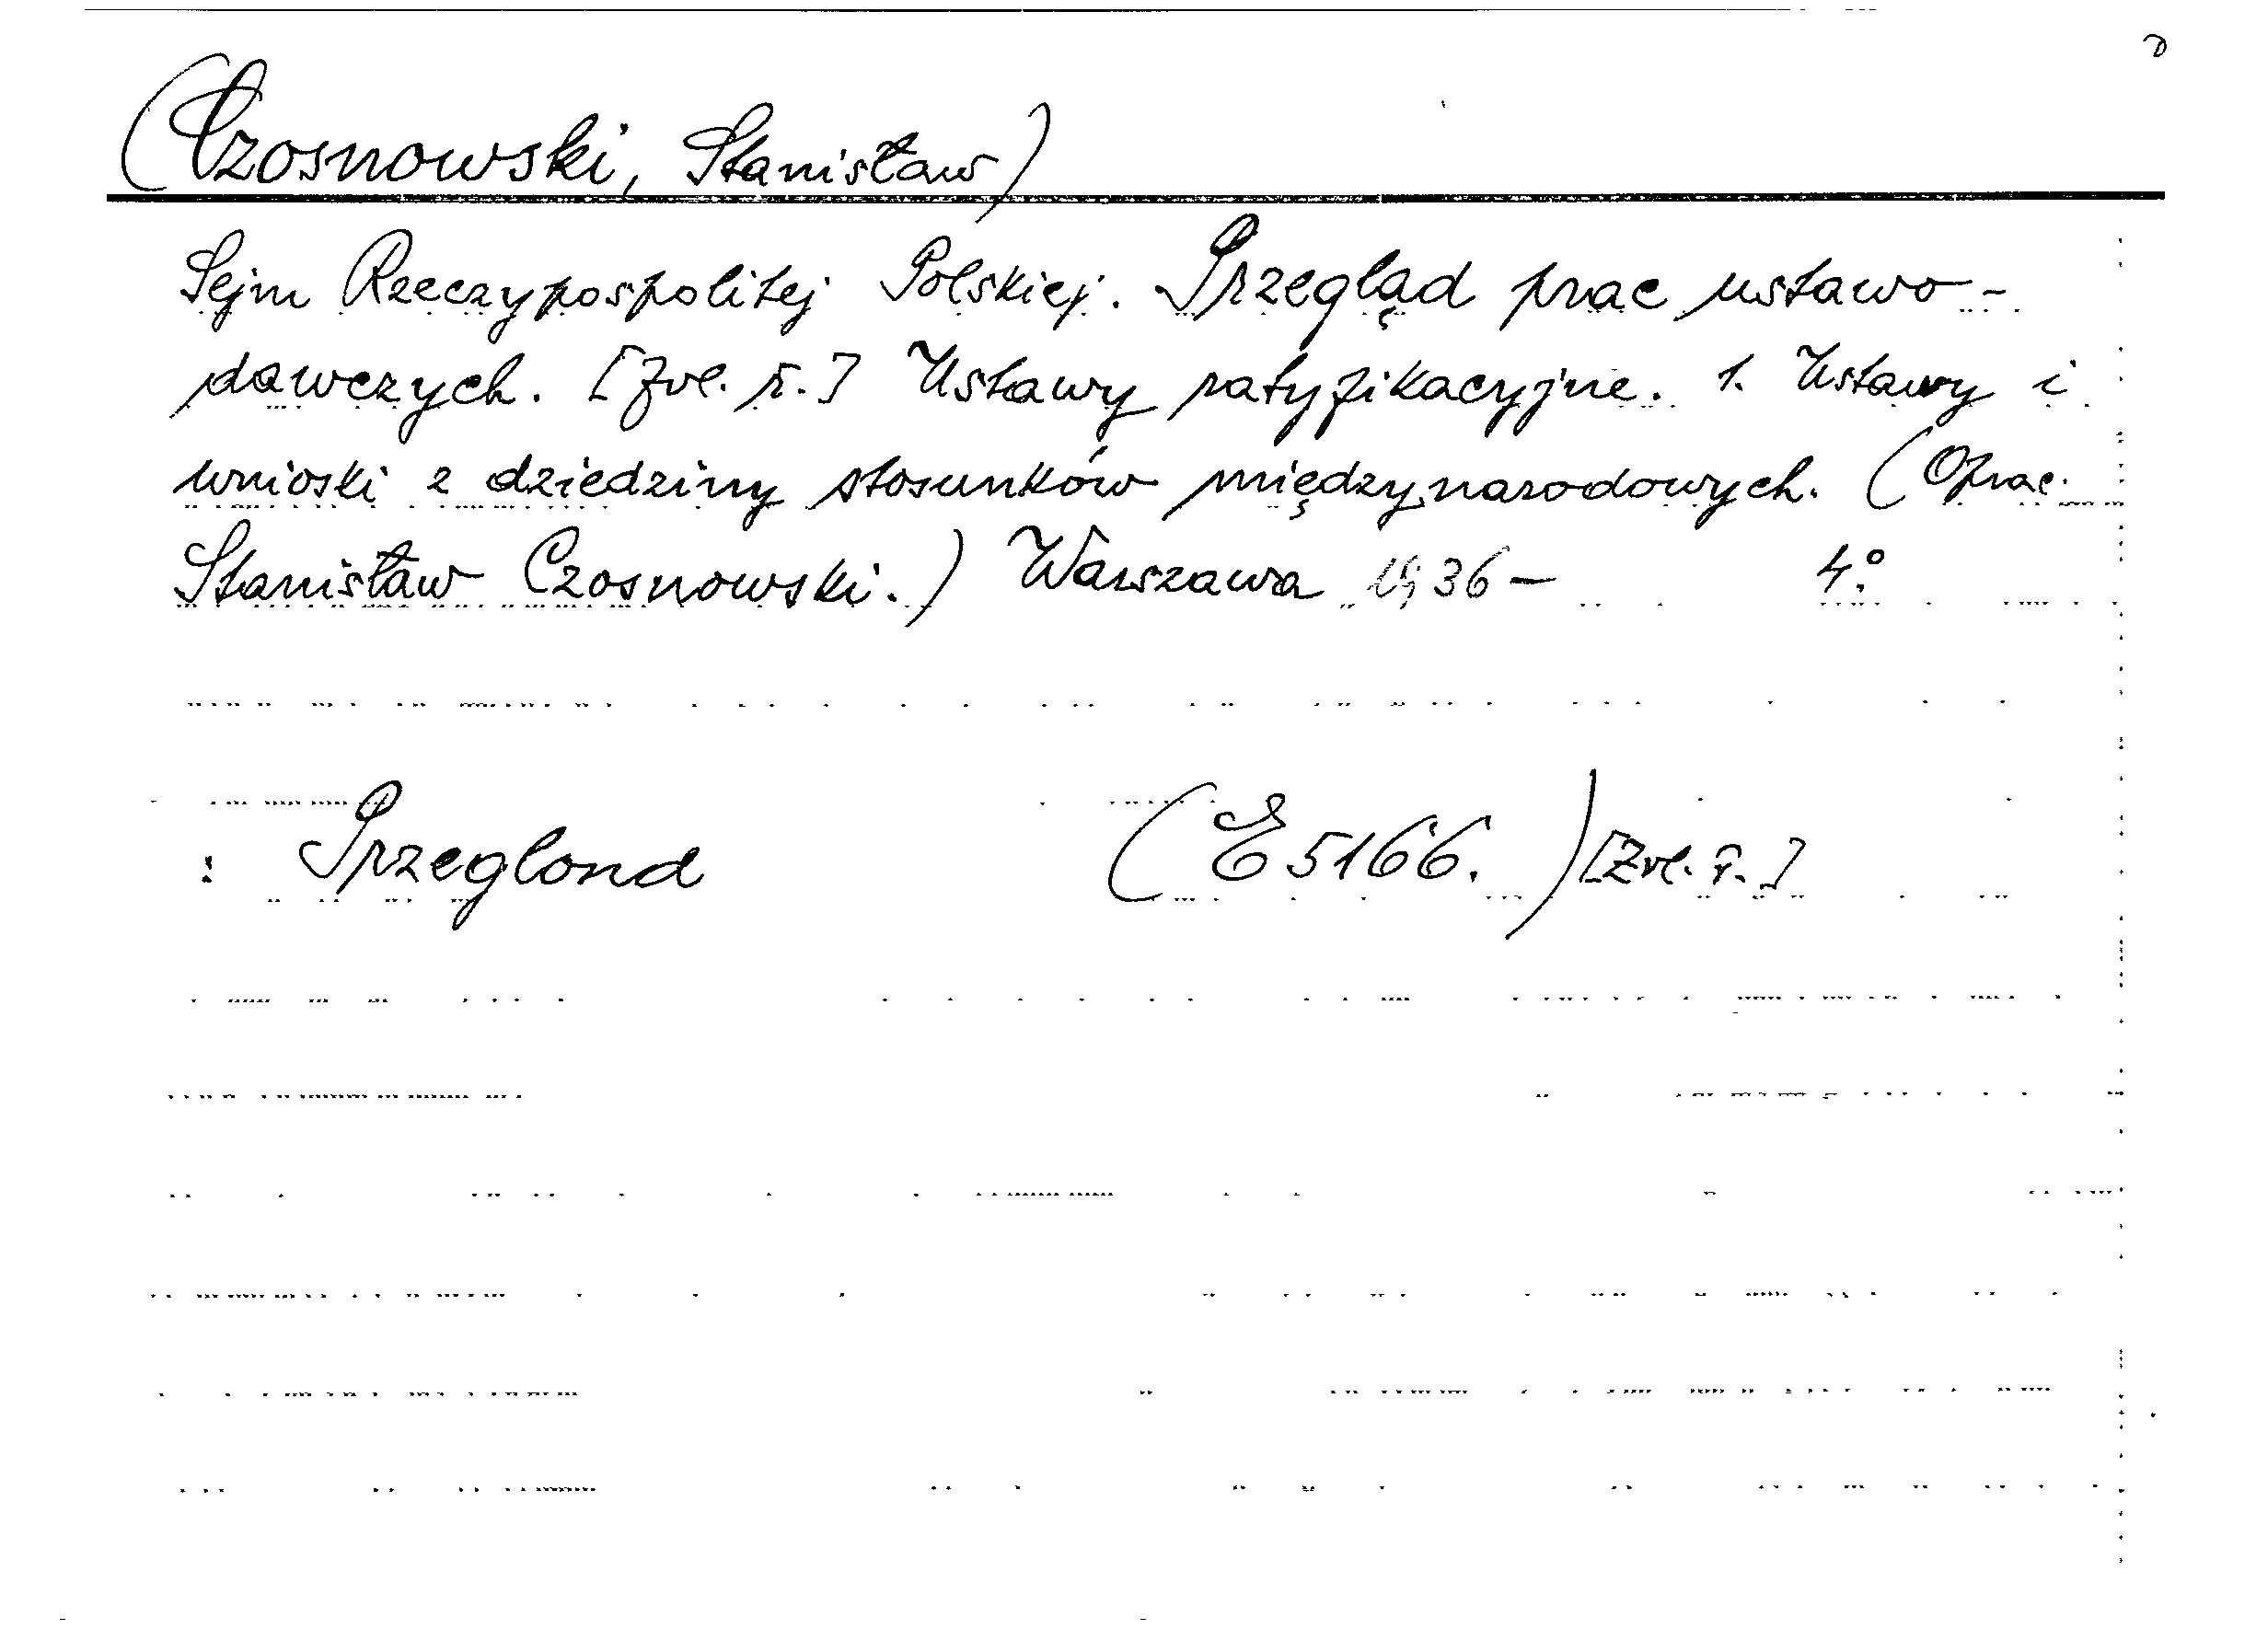 (Czosnowski, Stanisław)
Sejm Rzeczypospolitej Polskiej. Przegląd prac ustawo-
dawczych. [Zvl. ř.] Ustawy ratyfikacyjne. 1. Ustawy i
wnioski z dziedziny stosunków międzynarodowych. (Oprac.
Stanisław Czosnowski.) Warszawa 1936- 4°.
: Przeglond (E 5166.) [Zvl. ř.]